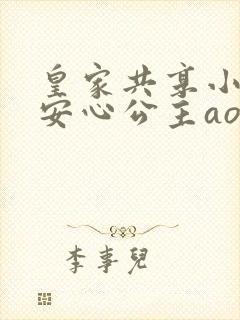 皇家共享小
安心公主ao
李事儿